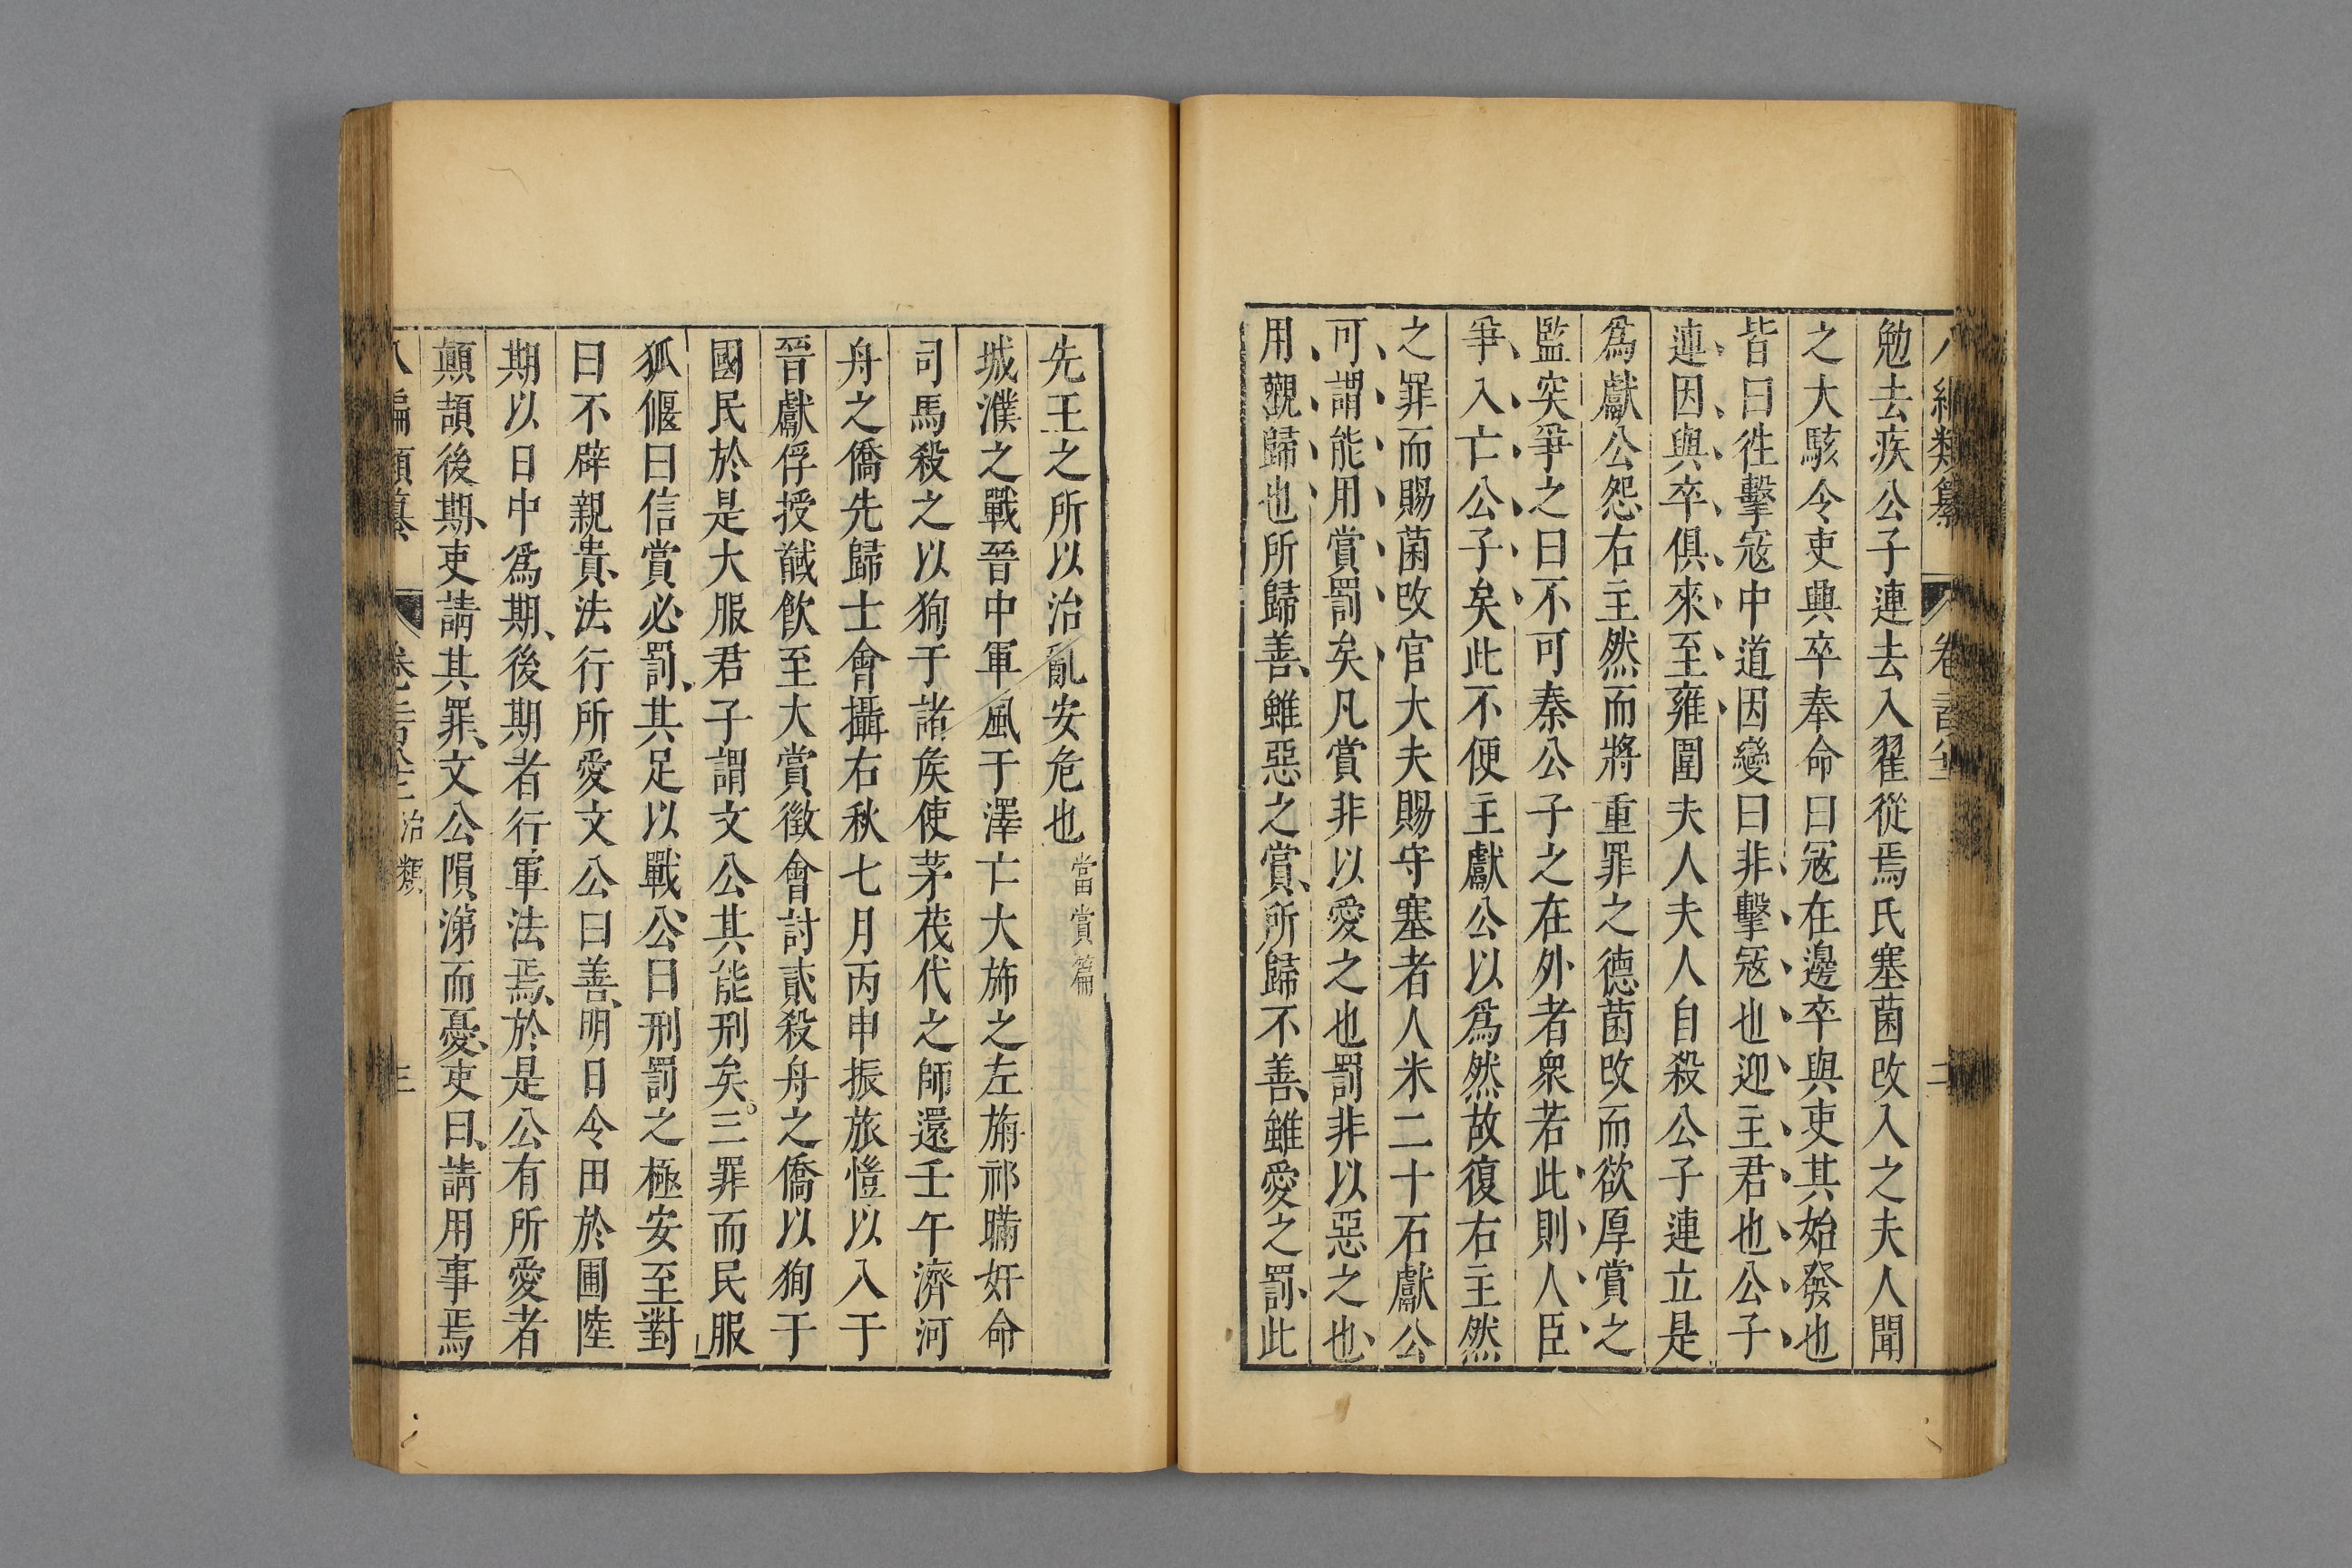 勉去疾公子連去入翟從焉氏塞菌改入之夫人聞
之大駭令吏興卒奉命曰冦在邊卒與吏其始發也
皆曰徃擊冦中道因變曰非擊冦也迎主君也公子
連因與卒俱來至雍圍夫人夫人自殺公子連立是
爲獻公怨右主然而將重罪之德菌改而欲厚賞之
監突爭之曰不可秦公子之在外者衆若此則人臣
爭入亡公子矣此不便主獻公以爲然故復右主然
之罪而賜菌改官大夫賜守塞者人米二十石獻公
可謂能用賞罰矣凡賞非以愛之也罰非以惡之也
用觀歸也所歸善雖惡之賞所歸不善雖愛之罰此
先王之所以治亂安危也當賞篇
城濮之戰晉中軍風于澤亡大斾之左旃祁瞞奸命
司馬殺之以狥于諸矦使茅茷代之師還壬午濟河
舟之僑先歸士會攝右秋七月丙申振旅愷以入于
晉獻俘授馘飲至大賞徵會討貳殺舟之僑以狥于
國民於是大服君子謂文公其能刑矣三罪而民服
狐偃曰信賞必罰其足以戰公曰刑罰之極安至對
曰不辟親貴法行所愛文公曰善明日令田於圃陸
期以日中爲期後期者行軍法焉於是公有所愛者
顛頡後期吏請其罪文公隕涕而憂吏曰請用事焉